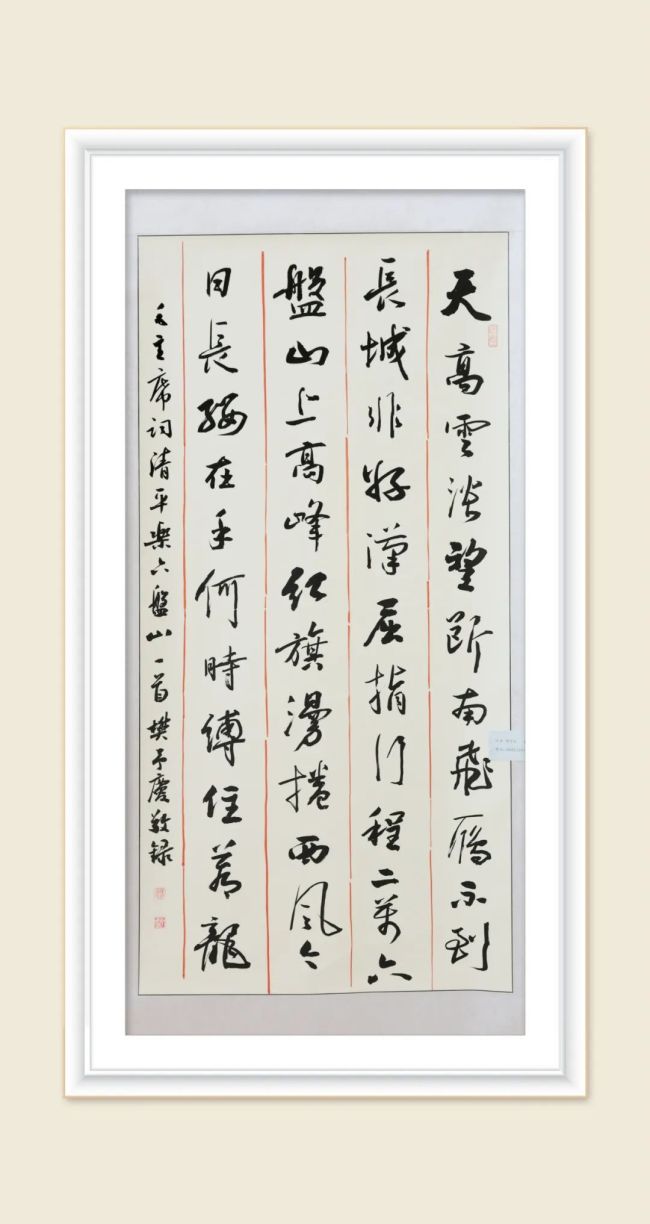 天高雲淡望断南飛雁不到
長城非好漢屈指行程二萬六
盤山上高峰紅旗漫捲西風今
日長纓在手何時縛住蒼龍
毛主席詞清平樂六盤山一首樊予慶敬録